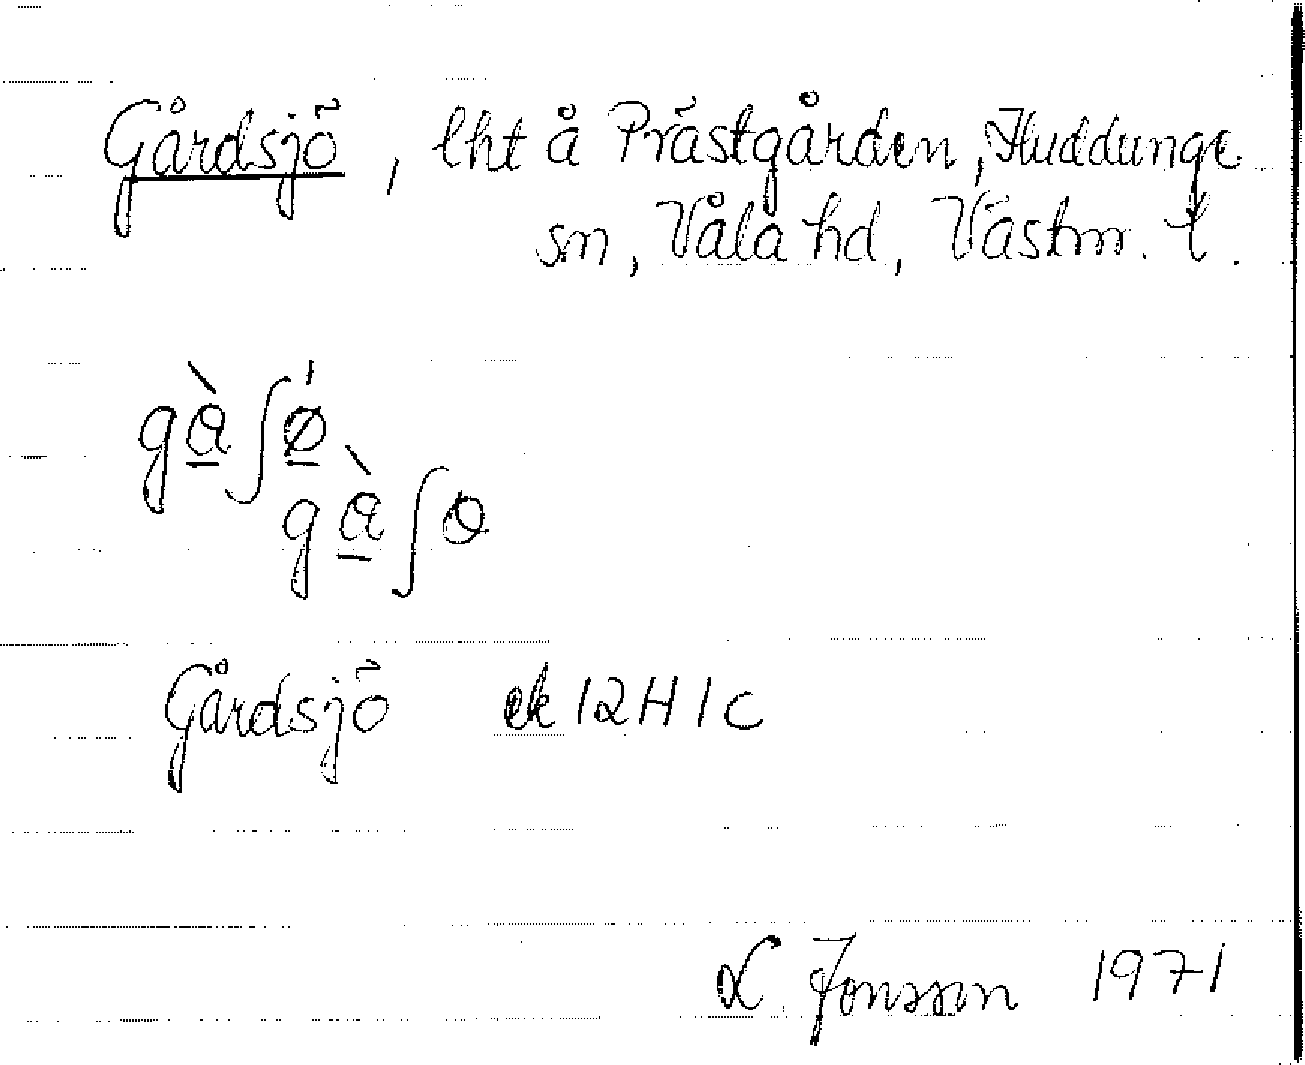 Gårdsjö, lht å Prästgården, Huddunge
sn, Våla hd, Västm. l.
gàʃǿ
gàʃø
Gårdsjö ek 12H1c
L. Jonsson 1971